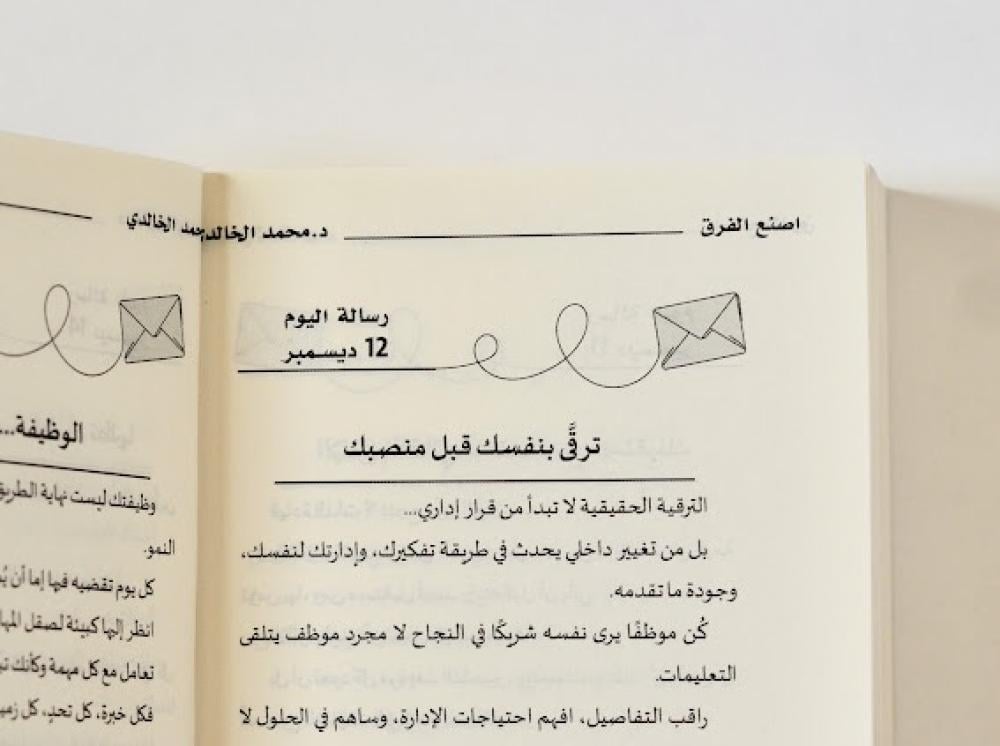 اصنع الفرق د.محمد الخالدي
رسالة اليوم
12 ديسمبر
ترقَّى بنفسك قبل منصبك
الترقية الحقيقية لا تبدأ من قرار إداري...
بل من تغيير داخلي يحدث في طريقة تفكيرك، وإدارتك لنفسك،
وجودة ما تقدمه.
كُن موظفًا يرى نفسه شريكًا في النجاح لا مجرد موظف يتلقى
التعليمات.
راقب التفاصيل، افهم احتياجات الإدارة، وساهم في الحلول لا
الخالدي
الوظيفة...
وظيفتك ليست نهاية الطريق
النمو.
كل يوم تقضيه فيها إما أن
انظر إليها كبيئة لصقل
تعامل مع كل مهمة وكأنك
فكل خبرة، كل تحدٍ، كل